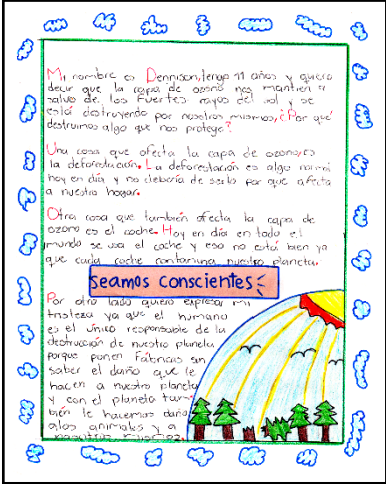 Mi nombre es Dennison, tengo 11 años y quiero
decir que la capa de ozono nos mantien a
salvo de los fuertes rayos del sol y se
está destruyendo por nosotros mismos, ¿Por qué
destruimos algo que nos protege?
Una cosa que afecta la capa de ozono, es
la deforestación. La deforestación es algo normal
hoy en día y no debería de serlo por que afecta
a nuestro hogar.
Otra cosa que también afecta la capa de
ozono es el coche. Hoy en día en todo el
mundo se usa el coche y eso no está bien ya
que cada coche contamina nuestro planeta.
seamos conscientes
Por otro lado quiero expresar mi
tristeza ya que el humano
es el único responsable de la
destrucción de nuestro planeta
porque ponen fábricas sin
saber el daño que le
hacen a nuestro planeta
y con el planeta tam
bién le hacemos daño
a los animales y a
nosotros